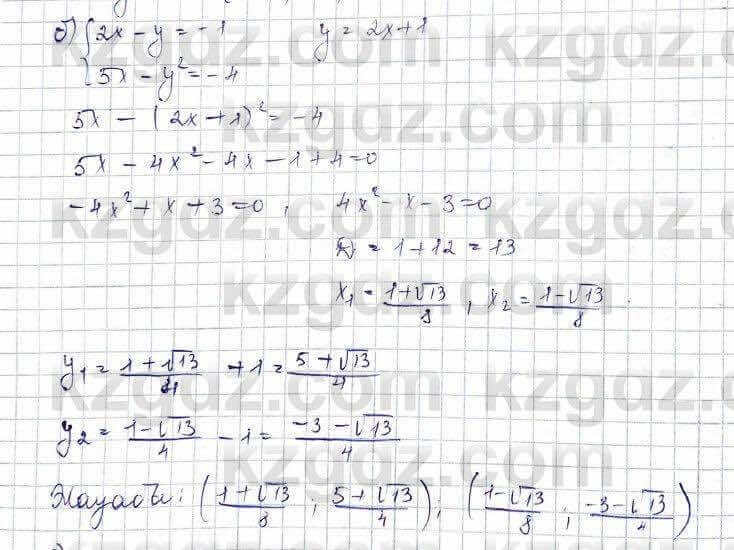 б) { 2x - y = -1      y = 2x+1
{ 5x - y² = -4
5x - (2x+1)² = -4
5x - 4x² - 4x - 1 + 4 = 0
-4x² + x + 3 = 0,      4x² - x - 3 = 0
D = 1 + 12 = 13
x₁ = (1+√13)/8, x₂ = (1-√13)/8.
y₁ = (1+√13)/4 + 1 = (5+√13)/4
y₂ = (1-√13)/4 - 1 = (-3-√13)/4
Жауабы: ((1+√13)/8; (5+√13)/4); ((1-√13)/8; (-3-√13)/4)
kzgdz.com